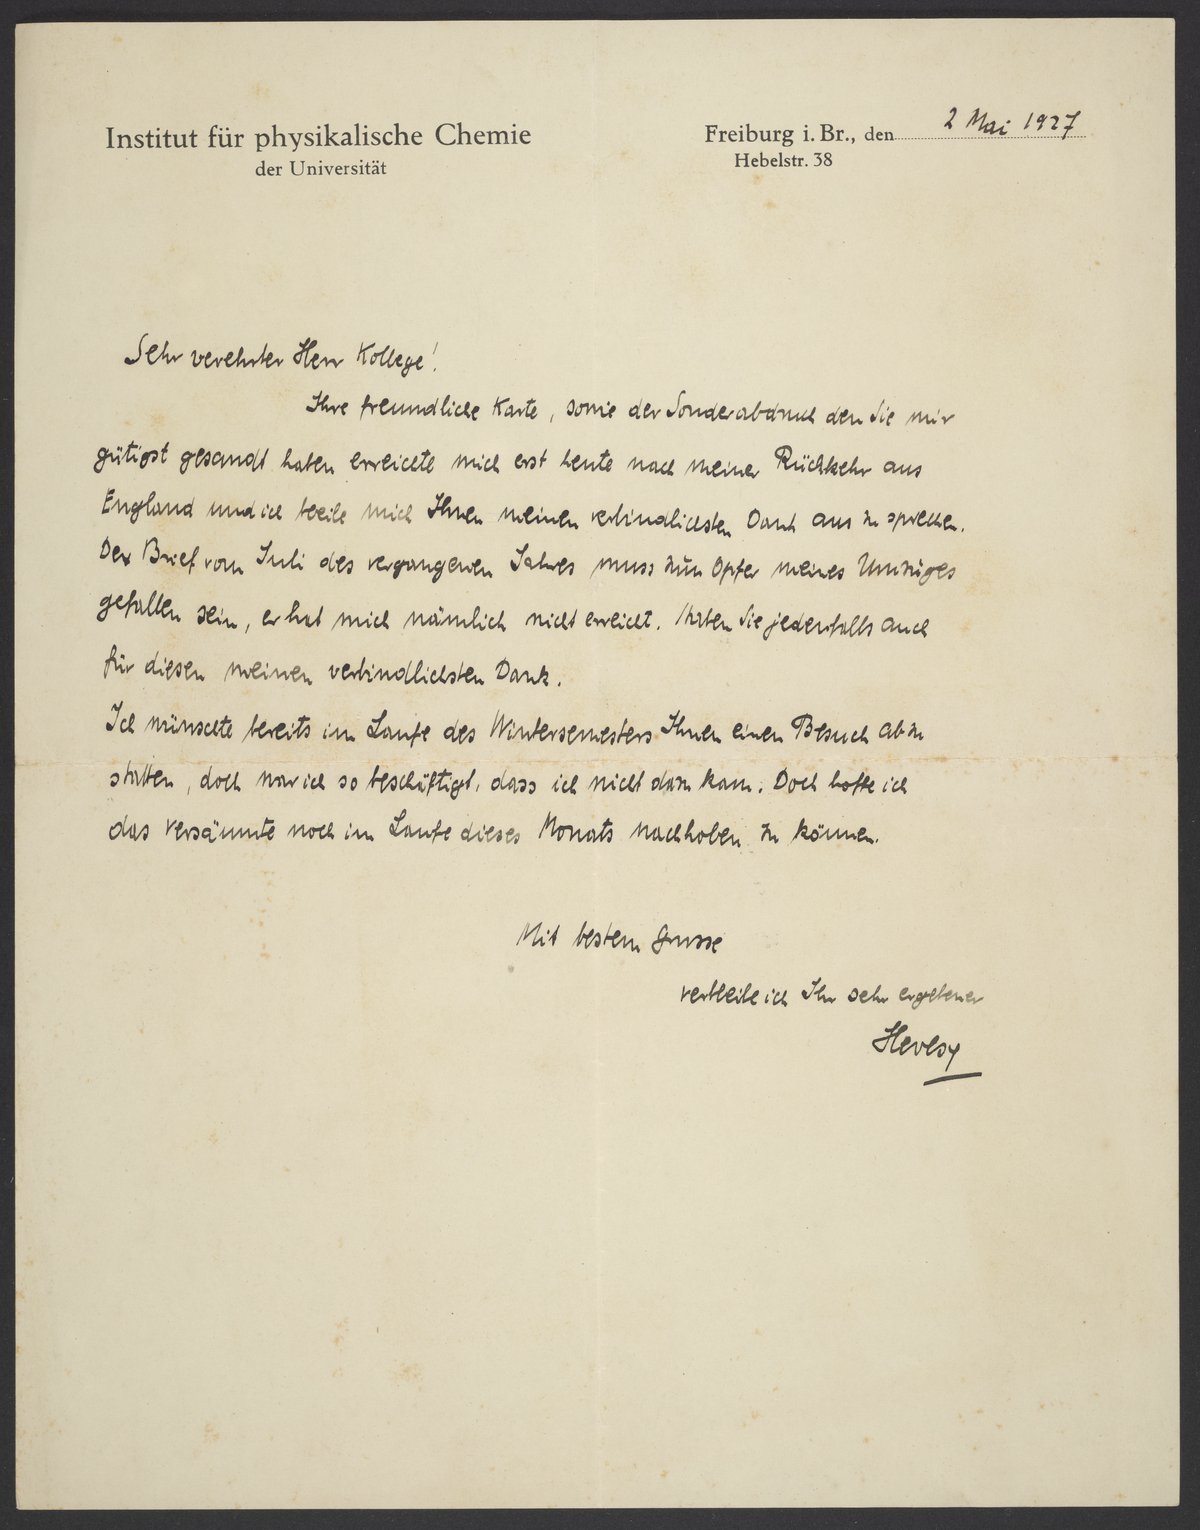 Institut für physikalische Chemie
der Universität
Freiburg i. Br., den 2 Mai 1927
Hebelstr. 38
Sehr verehrter Herr Kollege!
Ihre freundliche Karte, sowie der Sonderabdruck den Sie mir
gütigst gesandt haben erreichte mich erst heute nach meiner Rückkehr aus
England und ich beeile mich Ihnen meinen verbindlichsten Dank aus zu sprechen.
Der Brief vom Juli des vergangenen Jahres muss zum Opfer meines Umzuges
gefallen sein, er hat mich nämlich nicht erreicht. Haben Sie jedenfalls auch
für diesen meinen verbindlichsten Dank.
Ich wünschte bereits im Laufe des Wintersemesters Ihnen einen Besuch ab zu
statten, doch war ich so beschäftigt, dass ich nicht dazu kam. Doch hoffe ich
das Versäumte noch im Laufe dieses Monats nachholen zu können.
Mit bestem Grusse
verbleibe ich Ihr sehr ergebener
Hevesy